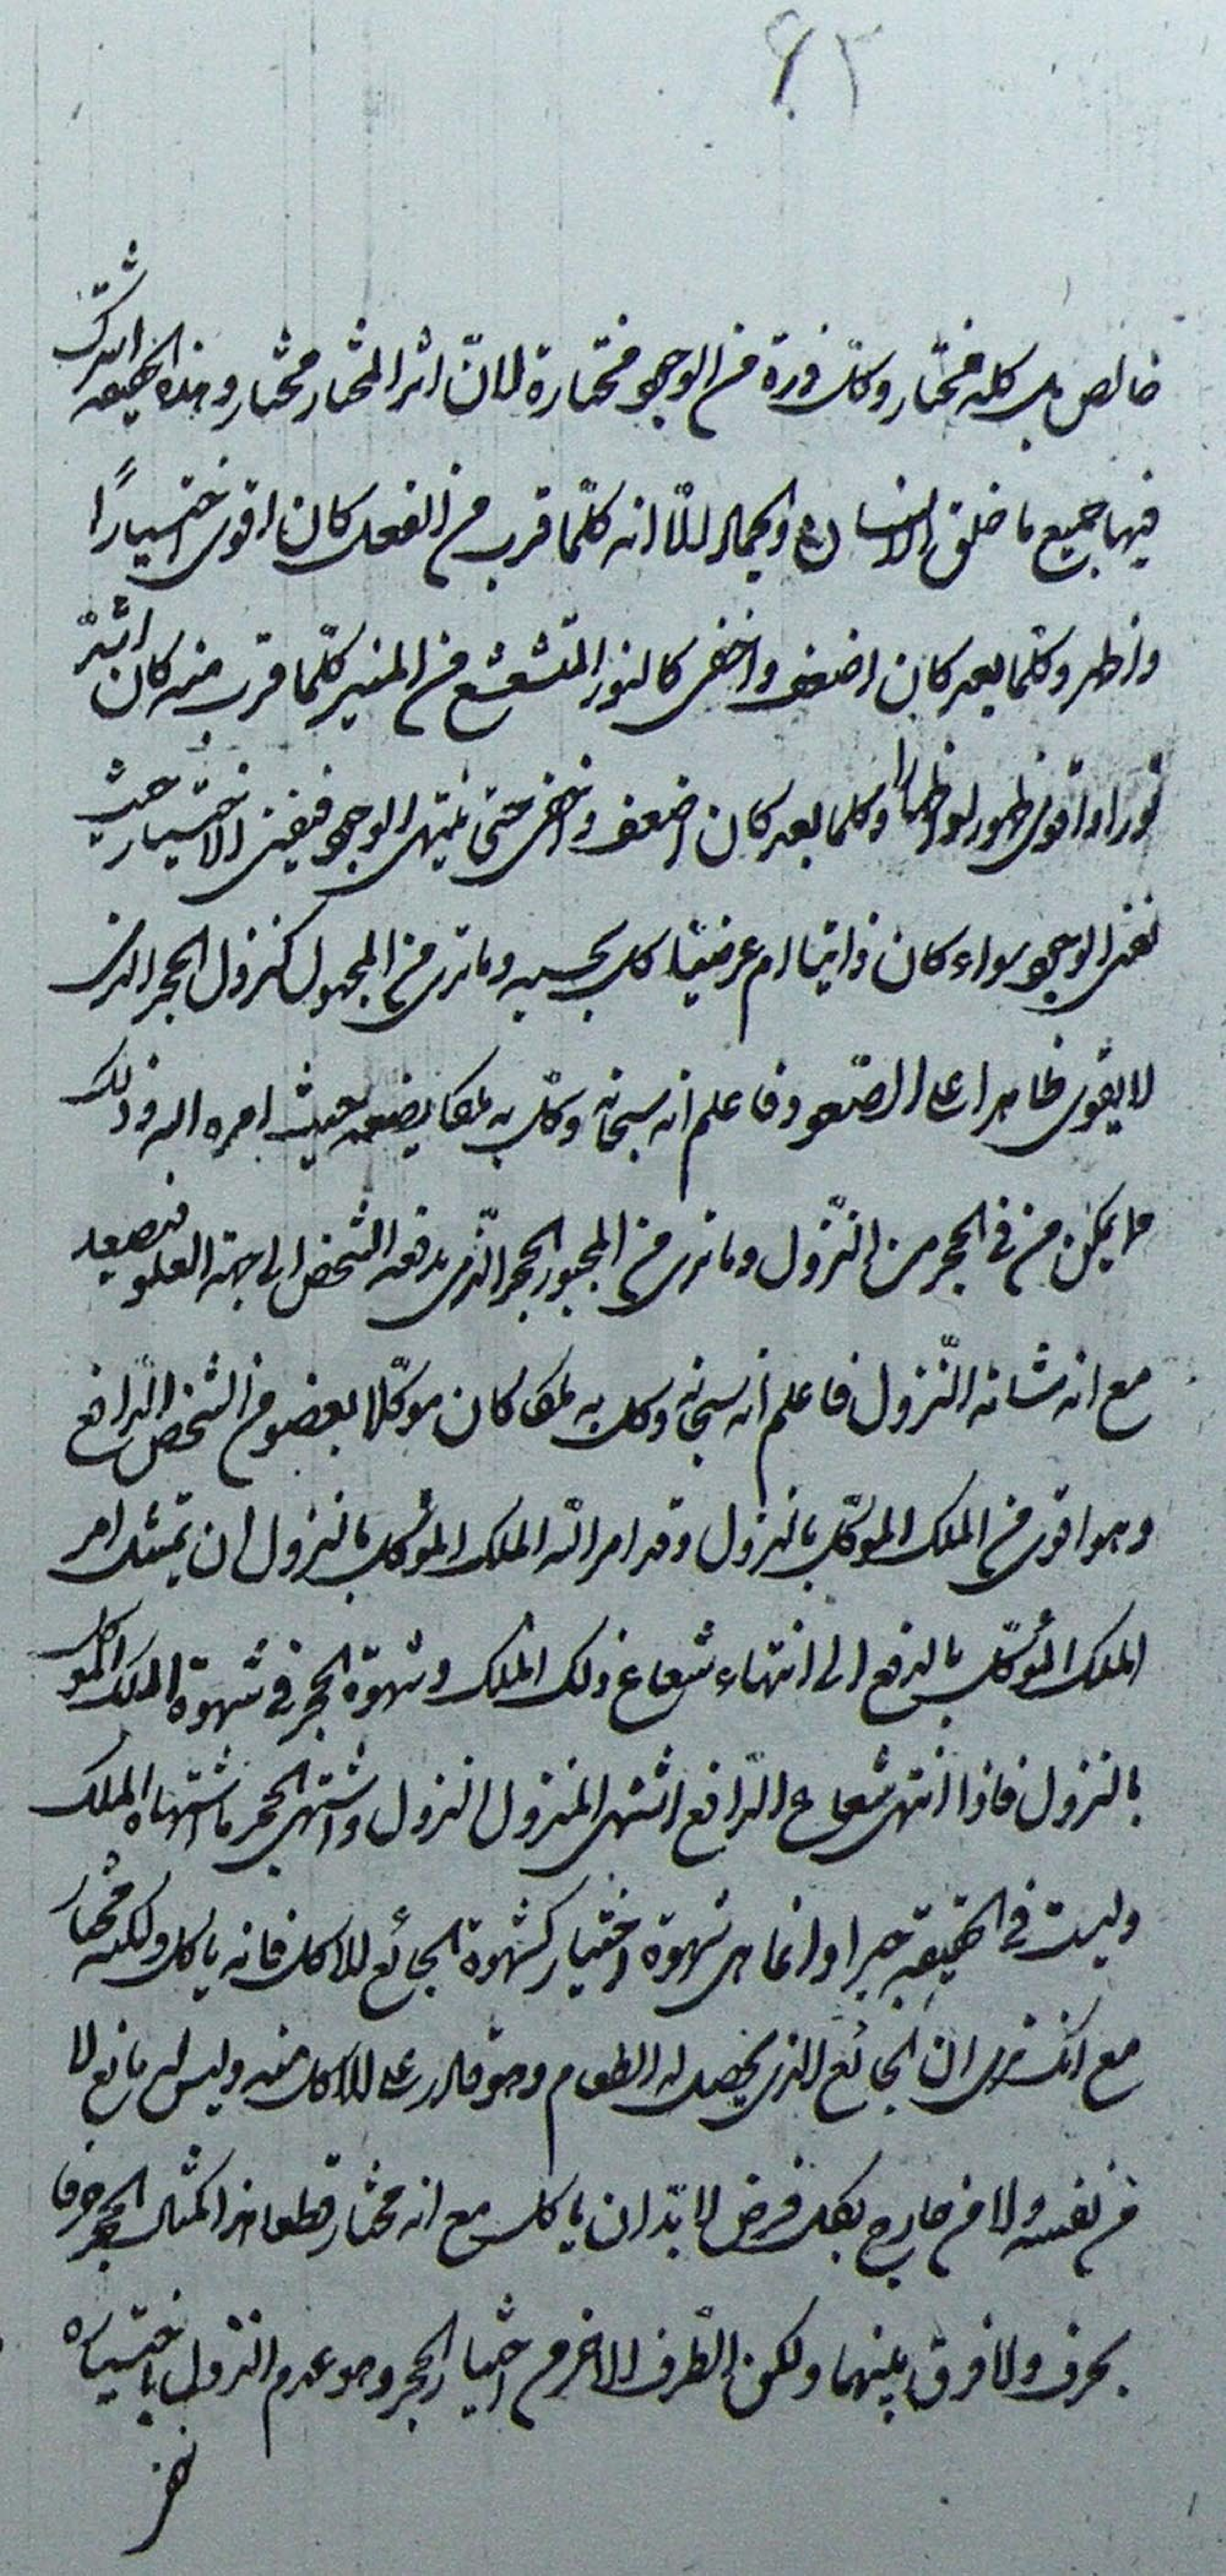 ٦٢
خالص بل كله مختار وكل ذرة من الوجود مختارة لانّ اثر المختار مختار وهذه الحقيقة اشترك
فيها جميع ما خلق الله الانسان والجماد الّا انه كلّما قرب من الفعل كان اقوى اختيارًا
واظهر وكلّما بعد كان اضعف واخفى كالنور المتشعشع من المنير كلّما قرب منه كان اشدّ
نورا واقوى ظهورا واظهارا وكلما بعد كان اضعف واخفى حتى ينتهى الوجود فيفنى الاختيار حيث
فنى الوجود سواء كان ذاتيا ام عرضيّا كل بحسبه وما ترى من المجبول كنزول الحجر الذى
لا يقوى ظاهرا على الصّعود فاعلم انه سبحانه وكّل به ملكا يضعه حيث امره الله وذلك
ما يمكن من فى الحجر من النّزول وما ترى من المجبور الحجر الّذى يدفعه الشخص الى جهة العلو فيصعد
مع انه شانه النّزول فاعلم انه سبحانه وكل به ملكا كان موكّلا بعضو من الشخص الدّافع
وهو اقوى من الملك الموكّل بالنزول وقد امر الله الملك الموكّل بالنزول ان يمتثل امر
الملك الموكّل بالدفع الى انتهاء شعاع ذلك الملك وشهوة الحجر فى شهوة الملك الموكل
بالنزول فاذا انتهى شعاع الدّافع اشتهى المنزول النزول واشتهى الحجر ما اشتهاه الملك
وليست فى الحقيقة جبرا وانما هى شهوة اختيار كشهوة الجائع للاكل فانه ياكل ولكنه مختار
مع انك ترى ان الجائع الذى يحصل له الطعام وهو قادر على الاكل منه وليس له مانع لا
من نفسه ولا من خارج بكل فرض لا بدّ ان ياكل مع انه مختار قطعا هذا كمثال الحجر حرفا
بحرف ولا فرق بينهما ولكن الطّرف الاخر من اختيار الحجر وهو عدم النزول باختياره